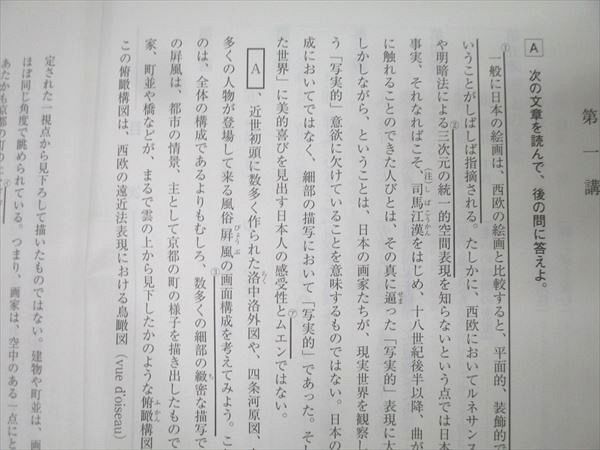 第一講
A 次の文章を読んで、後の問に答えよ。
① 一般に日本の絵画は、西欧の絵画と比較すると、平面的、装飾的で
いうことがしばしば指摘される。たしかに、西欧においてルネサンス
や明暗法による三次元の統一的空間表現を知らないという点では日本
②
事実、それなればこそ、司馬江漢をはじめ、十八世紀後半以降、曲が
(注)しばこうかん
に触れることのできた人びとは、その真に逼った「写実的」表現に大
せま
しかしながら、ということは、日本の画家たちが、現実世界を観察し
う「写実的」意欲に欠けていることを意味するものではない。日本の
成においてではなく、細部の描写において「写実的」であった。そし
た世界」に美的喜びを見出す日本人の感受性とムエンではない。
㋐
A 、近世初頭に数多く作られた洛中洛外図や、四条河原図、
らく
多くの人物が登場して来る風俗屏風の画面構成を考えてみよう。こ
びょうぶ
③
のは、全体の構成であるよりもむしろ、数多くの細部の緻密な描写で
ち
の屏風は、都市の情景、主として京都の町の様子を描き出したもので
家、町並や橋などが、まるで雲の上から見下したかのような俯瞰構図
ふかん
この俯瞰構図は、西欧の遠近法表現における鳥瞰図(vue d'oiseau)
定された一視点から見下ろして描いたものではない。建物や町並は、画
ほぼ同じ角度で眺められている。つまり、画家は、空中のある一点にと
あたかも京都の町の